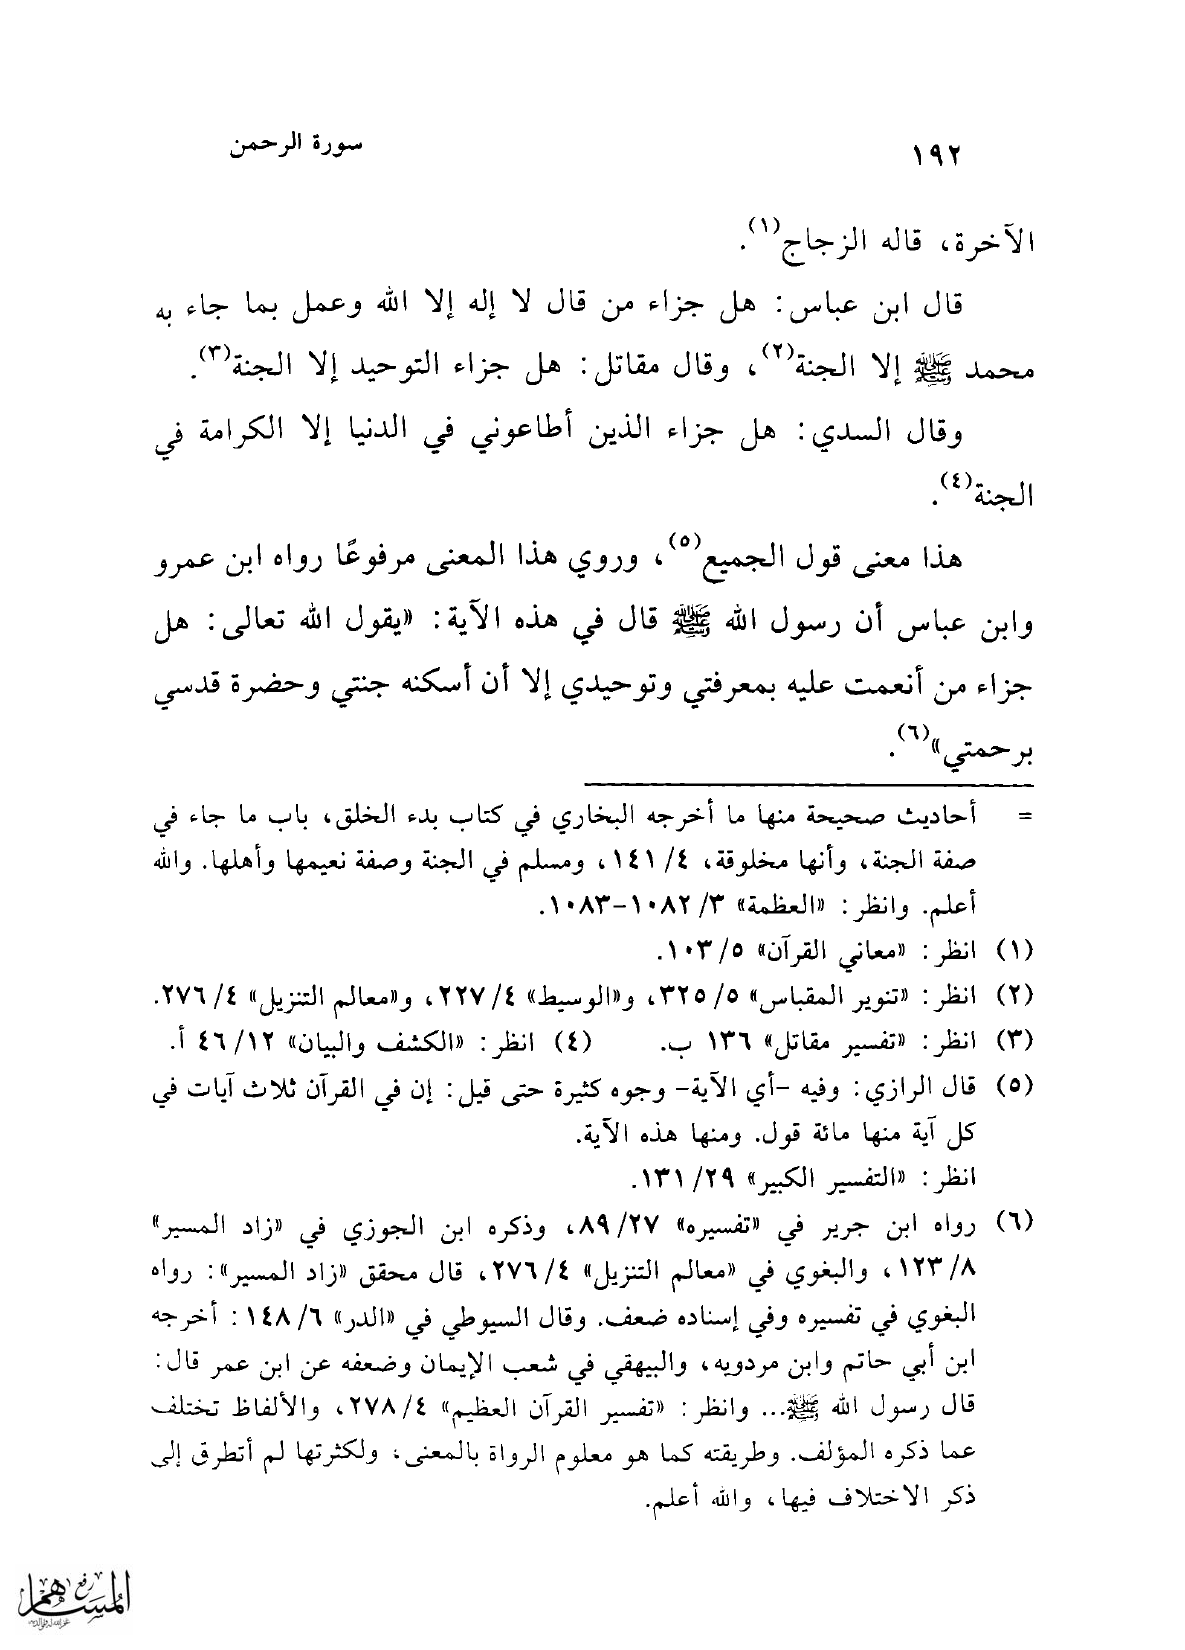 ١٩٢ سورة الرحمن
الآخرة، قاله الزجاج(١).
قال ابن عباس: هل جزاء من قال لا إله إلا الله وعمل بما جاء به
محمد ﷺ إلا الجنة(٢)، وقال مقاتل: هل جزاء التوحيد إلا الجنة(٣).
وقال السدي: هل جزاء الذين أطاعوني في الدنيا إلا الكرامة في
الجنة(٤).
هذا معنى قول الجميع(٥)، وروي هذا المعنى مرفوعًا رواه ابن عمرو
وابن عباس أن رسول الله ﷺ قال في هذه الآية: «يقول الله تعالى: هل
جزاء من أنعمت عليه بمعرفتي وتوحيدي إلا أن أسكنه جنتي وحضرة قدسي
برحمتي»(٦).
= أحاديث صحيحة منها ما أخرجه البخاري في كتاب بدء الخلق، باب ما جاء في
صفة الجنة، وأنها مخلوقة، ٤/ ١٤١، ومسلم في الجنة وصفة نعيمها وأهلها. والله
أعلم. وانظر: «العظمة» ٣/ ١٠٨٢-١٠٨٣.
(١) انظر: «معاني القرآن» ٥/ ١٠٣.
(٢) انظر: «تنوير المقباس» ٥/ ٣٢٥، و«الوسيط» ٤/ ٢٢٧، و«معالم التنزيل» ٤/ ٢٧٦.
(٣) انظر: «تفسير مقاتل» ١٣٦ ب. (٤) انظر: «الكشف والبيان» ١٢/ ٤٦ أ.
(٥) قال الرازي: وفيه -أي الآية- وجوه كثيرة حتى قيل: إن في القرآن ثلاث آيات في
كل آية منها مائة قول. ومنها هذه الآية.
انظر: «التفسير الكبير» ٢٩/ ١٣١.
(٦) رواه ابن جرير في «تفسيره» ٢٧/ ٨٩، وذكره ابن الجوزي في «زاد المسير»
٨/ ١٢٣، والبغوي في «معالم التنزيل» ٤/ ٢٧٦، قال محقق «زاد المسير»: رواه
البغوي في تفسيره وفي إسناده ضعف. وقال السيوطي في «الدر» ٦/ ١٤٨: أخرجه
ابن أبي حاتم وابن مردويه، والبيهقي في شعب الإيمان وضعفه عن ابن عمر قال:
قال رسول الله ﷺ... وانظر: «تفسير القرآن العظيم» ٤/ ٢٧٨، والألفاظ تختلف
عما ذكره المؤلف. وطريقته كما هو معلوم الرواة بالمعنى، ولكثرتها لم أتطرق إلى
ذكر الاختلاف فيها، والله أعلم.
رفع
المساهم